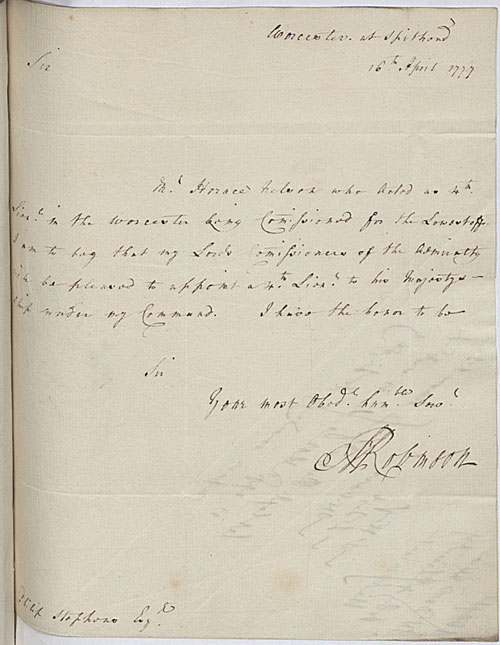 Worcester at Spithead
16th April 1777
Sir
Mr Horace Nelson who acted as 4th
Lieut in the Worcester being Comissioned for the Lowestoff
I am to beg that my Lords Comissioners of the Admiralty
will be pleased to appoint a 4th Lieut to his Majestys
Ship under my Command. I have the honor to be
Sir
Your most Obedt humble Servt
MRobinson
Stephens Esqr